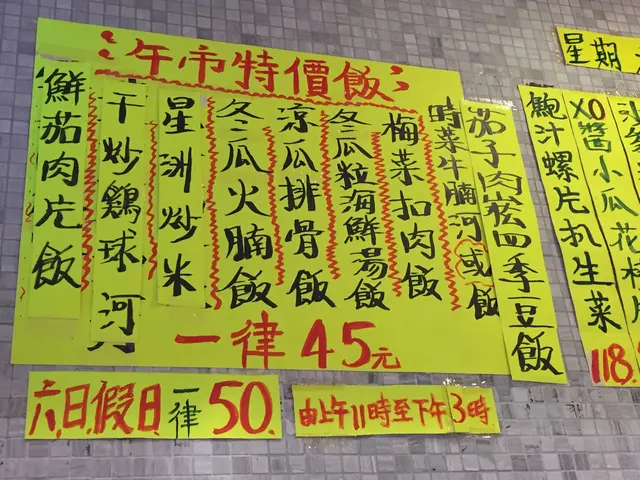 午市特價飯
鮮茄肉片飯
干炒鷄球河
星洲炒米
冬瓜火腩飯
凉瓜排骨飯
冬瓜粒海鮮湯飯
梅菜扣肉飯
時菜牛腩河或飯
茄子肉崧四季豆飯
一律45元
六.日.假日一律50.
由上午11時至下午3時
星期
鮑汁螺片扒生菜
118
XO醬小瓜花